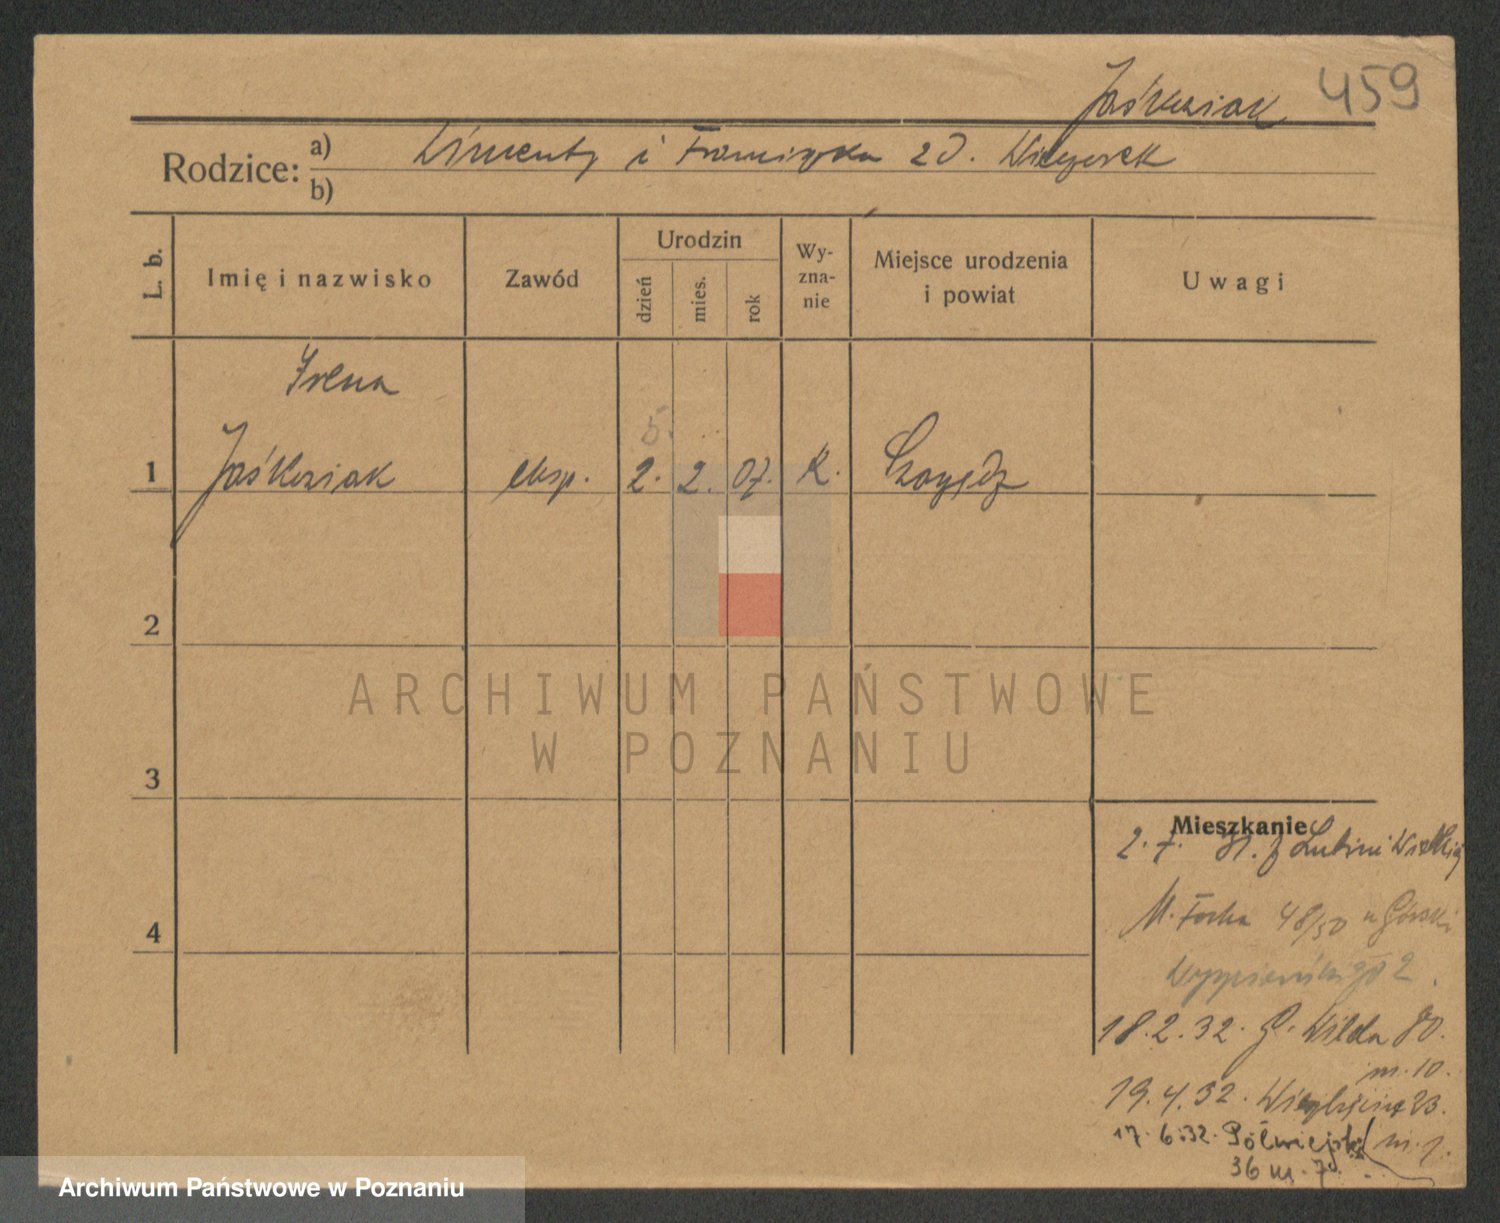 Jaśkowiak 459
Rodzice: a) i Franciszka zd.
b)
L. b. Imię i nazwisko Zawód Urodzin dzień mies. rok Wy-zna-nie Miejsce urodzenia i powiat Uwagi
Irena
1 Jaśkowiak eksp. 2. 2. 07. k.
2
3
4
Mieszkanie
2. 7. 31. z
M. Focha 48/50 u Górski
Wyspiańskiego 2
18.2.32. G. Wilda 80.
m. 10.
19.4.32. 23.
17.6.32. Półwiejska m. 1.
36 m. 7
ARCHIWUM PAŃSTWOWE
W POZNANIU
Archiwum Państwowe w Poznaniu